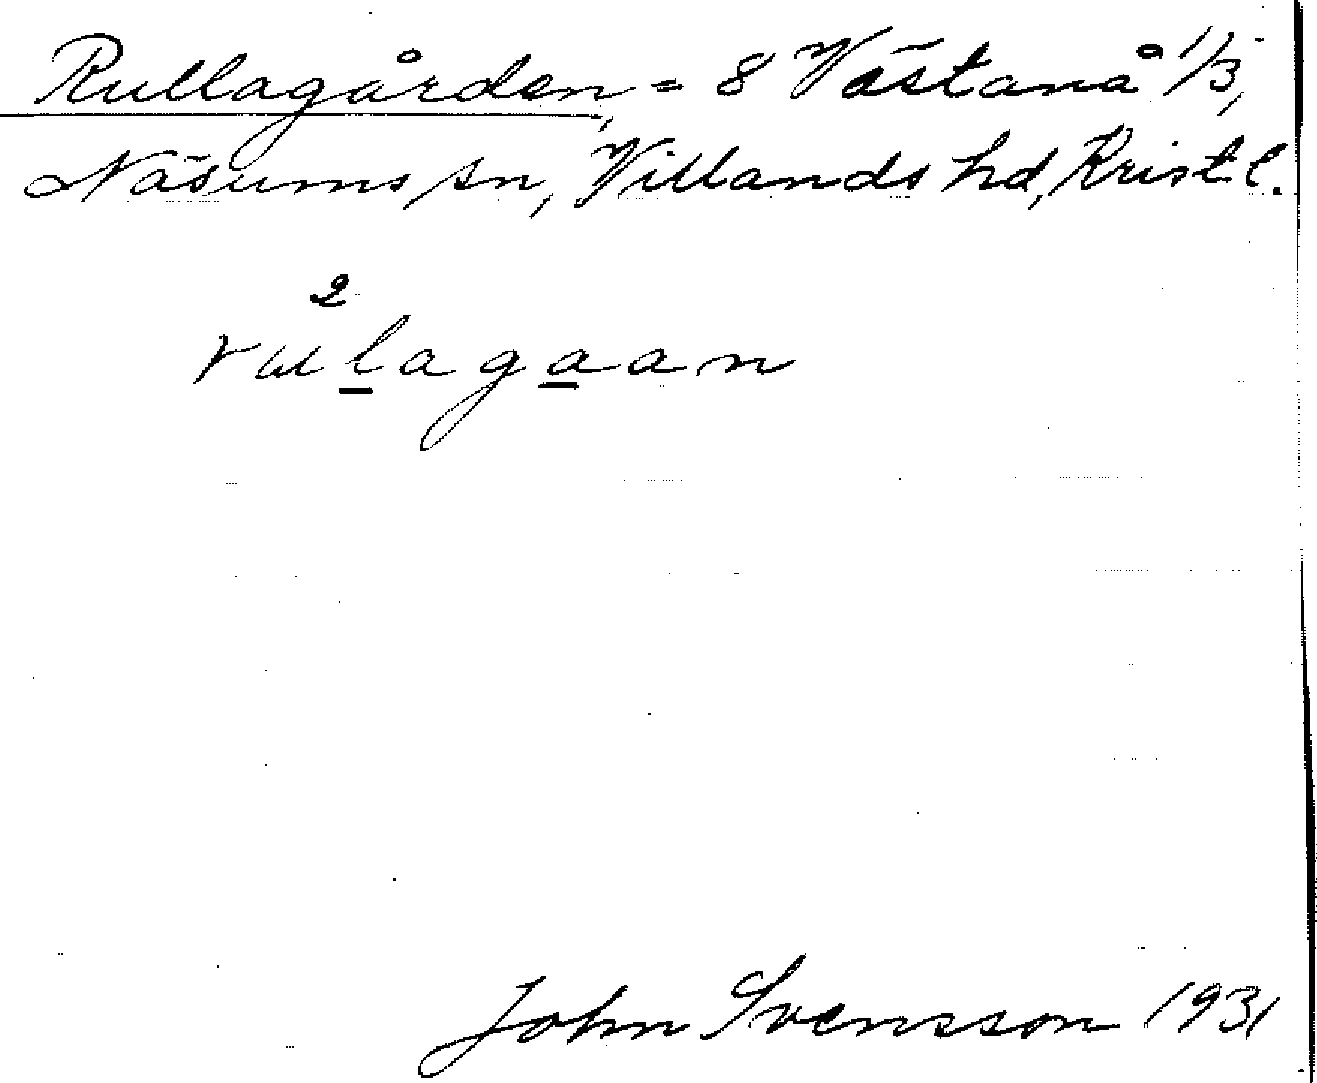 Rullagården, = 8 Västanå 1/3,
Näsums sn, Villands hd, Krist. l.
2
rulagaan
John Svensson 1931